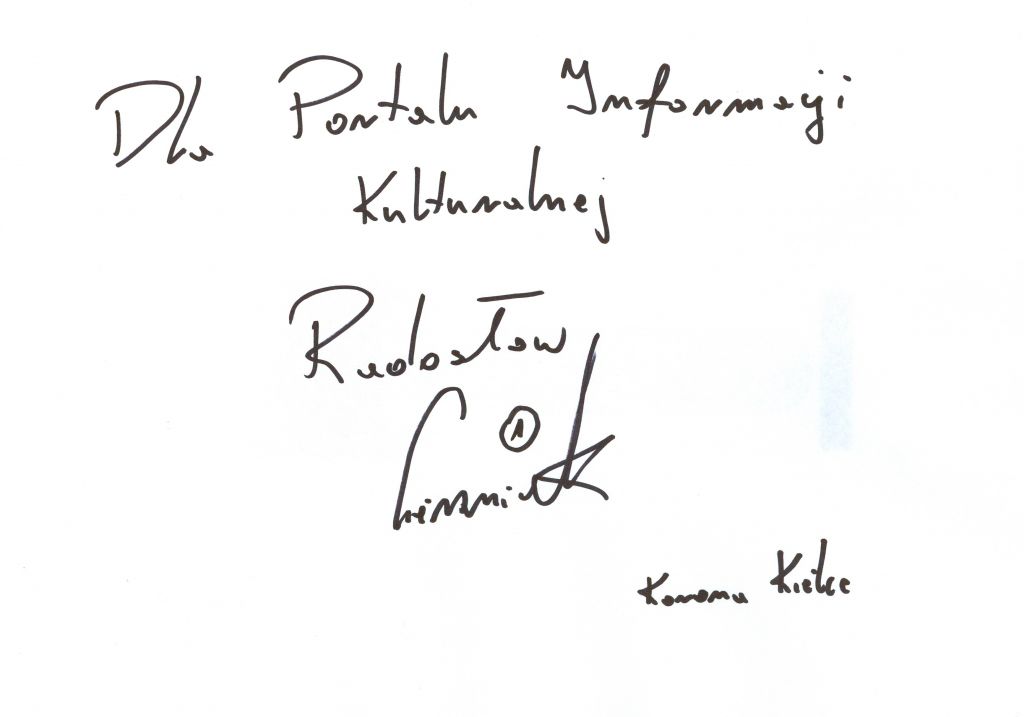 Dla Portalu Informacji
Kulturalnej
Radosław
1
Cierzniak
Korona Kielce